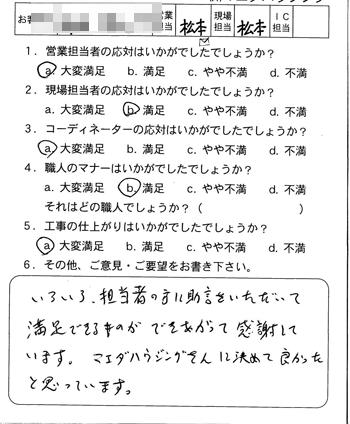 営業
担当 松本 現場
担当 松本 ＩＣ
担当
1．営業担当者の応対はいかがでしたでしょうか？
a. 大変満足 b. 満足 c. やや不満 d. 不満
2．現場担当者の応対はいかがでしたでしょうか？
a. 大変満足 b. 満足 c. やや不満 d. 不満
3．コーディネーターの応対はいかがでしたでしょうか？
a. 大変満足 b. 満足 c. やや不満 d. 不満
4．職人のマナーはいかがでしたでしょうか？
a. 大変満足 b. 満足 c. やや不満 d. 不満
それはどの職人でしょうか？（ ）
5．工事の仕上がりはいかがでしたでしょうか？
a. 大変満足 b. 満足 c. やや不満 d. 不満
6．その他、ご意見・ご要望をお書き下さい。
いろいろ、担当者の方に助言をいただいて
満足できるものができあがって感謝して
います。マエダハウジングさんに決めて良かった
と思っています。